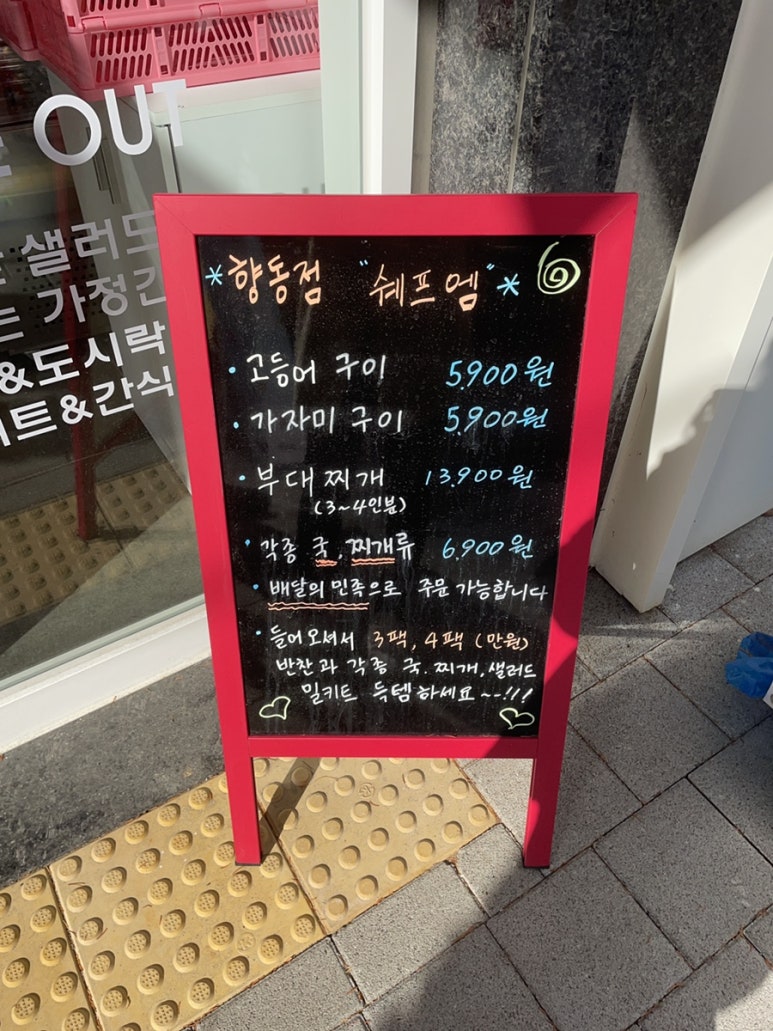 OUT
샐러드
가정간
&도시락
트&간식
*향동점 "쉐프엠"*
· 고등어 구이 5,900원
· 가자미 구이 5,900원
· 부대찌개 13,900원
(3~4인분)
· 각종 국, 찌개류 6,900원
· 배달의 민족으로 주문 가능합니다
· 들어오셔서 3팩, 4팩 (만원)
반찬과 각종 국.찌개,샐러드
밀키트 득템하세요~~!!!